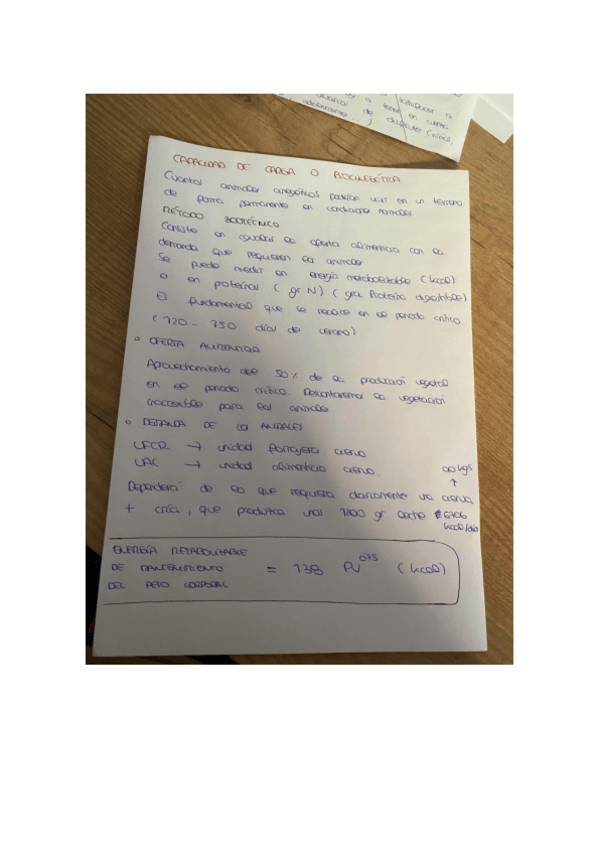 satisfacer a
a tener en cuenta
de disfrute (niños,
adolescentes...)
CAPACIDAD DE CARGA O BIOCINEGÉTICA
Cuantos animales cinegéticos podrían vivir en un terreno
de forma permanente en condiciones normales.
MÉTODO ZOOTÉCNICO
Consiste en igualar la oferta alimenticia con la
demanda que requieren los animales
Se puede medir en energía metabolizable (kcal)
o en proteínas (gr N) (gr Proteína digestible)
Es fundamental que se realice en el periodo crítico
(120 - 150 días de verano)
o OFERTA ALIMENTICIA
Aprovechamiento del 50% de la producción vegetal
en el periodo crítico. Descontaremos la vegetación
inaccesible para los animales
o DEMANDA DE LOS ANIMALES
UFCR → unidad forrajera ciervo
UAC → unidad alimenticia ciervo.
Dependerá de lo que requiera diariamente una cierva
+ cría, que produzca unos 1200 gr leche
kcal/día
ENERGÍA METABOLIZABLE
DE MANTENIMIENTO = 138 PV^0,75 (kcal)
DEL PESO CORPORAL